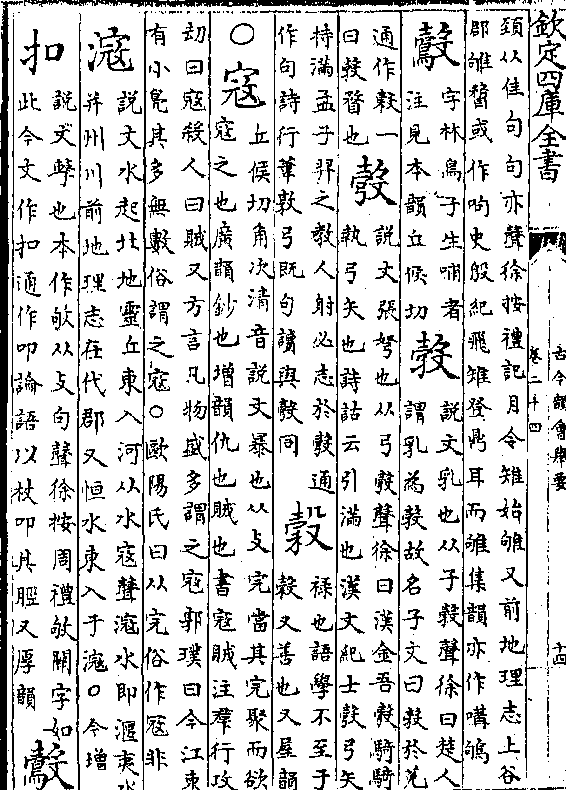 欽定四庫全書
古今韻會舉要
卷二十四
十四
頸从隹句句亦聲徐按禮記月令雉始雊又前地理志上谷
郡雊瞀或作呴史殷紀飛雉登鼎耳而雊集韻亦作鴝
鷇
字林鳥子生哺者
注見本韻丘候切
㝅
說文乳也从子㱿聲徐曰楚人
謂乳為㝅故名子文曰㝅於菟
通作㝅一
曰㝅瞀也
彀
說文張弩也从弓㱿聲徐曰漢金吾彀騎騎
執弓矢也詩詁云引滿也漢文紀士彀弓矢
持滿孟子羿之教人射必志於彀通
作句詩行葦敦弓既句讀與彀同
穀
祿也語學不至于
穀又善也又屋韻
○寇
丘候切角次清音說文暴也从攴完當其完聚而欲
寇之也廣韻鈔也增韻仇也賊也書寇賊注羣行攻
劫曰寇殺人曰賊又方言凡物盛多謂之寇郭璞曰今江東
有小鳧其多無數俗謂之寇○歐陽氏曰从完俗作冦非
滱
說文水起北地靈丘東入河从水寇聲滱水即漚夷水
并州川前地理志在代郡又恒水東入于滱○今增
扣
說文擊也本作敂从攴句聲徐按周禮敂關字如
此今文作扣通作叩論語以杖叩其脛又厚韻
鷇